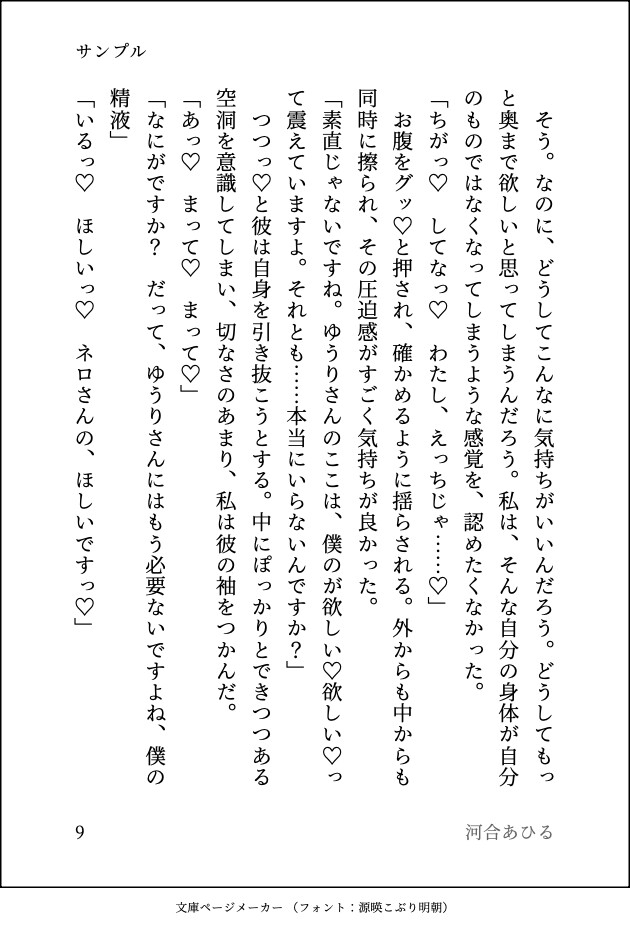 サンプル
　そう。なのに、どうしてこんなに気持ちがいいんだろう。どうしてもっ
と奥まで欲しいと思ってしまうんだろう。私は、そんな自分の身体が自分
のものではなくなってしまうような感覚を、認めたくなかった。
「ちがっ♡　してなっ♡　わたし、えっちじゃ……♡」
　お腹をグッ♡と押され、確かめるように揺らされる。外からも中からも
同時に擦られ、その圧迫感がすごく気持ちが良かった。
「素直じゃないですね。ゆうりさんのここは、僕のが欲しい♡欲しい♡っ
て震えていますよ。それとも……本当にいらないんですか？」
　つつっ♡と彼は自身を引き抜こうとする。中にぽっかりとできつつある
空洞を意識してしまい、切なさのあまり、私は彼の袖をつかんだ。
「あっ♡　まって♡　まって♡」
「なにがですか？　だって、ゆうりさんにはもう必要ないですよね、僕の
精液」
「いるっ♡　ほしいっ♡　ネロさんの、ほしいですっ♡」
9
河合あひる
文庫ページメーカー（フォント：源暎こぶり明朝）